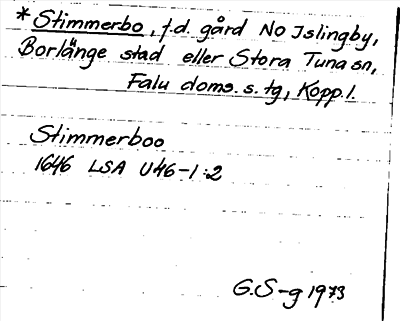 * Stimmerbo, f.d. gård NO Islingby,
Borlänge stad eller Stora Tuna sn,
Falu doms. s. tg, Kopp. l.
Stimmerboo
1646 LSA U46-1:2
G.S-g 1973